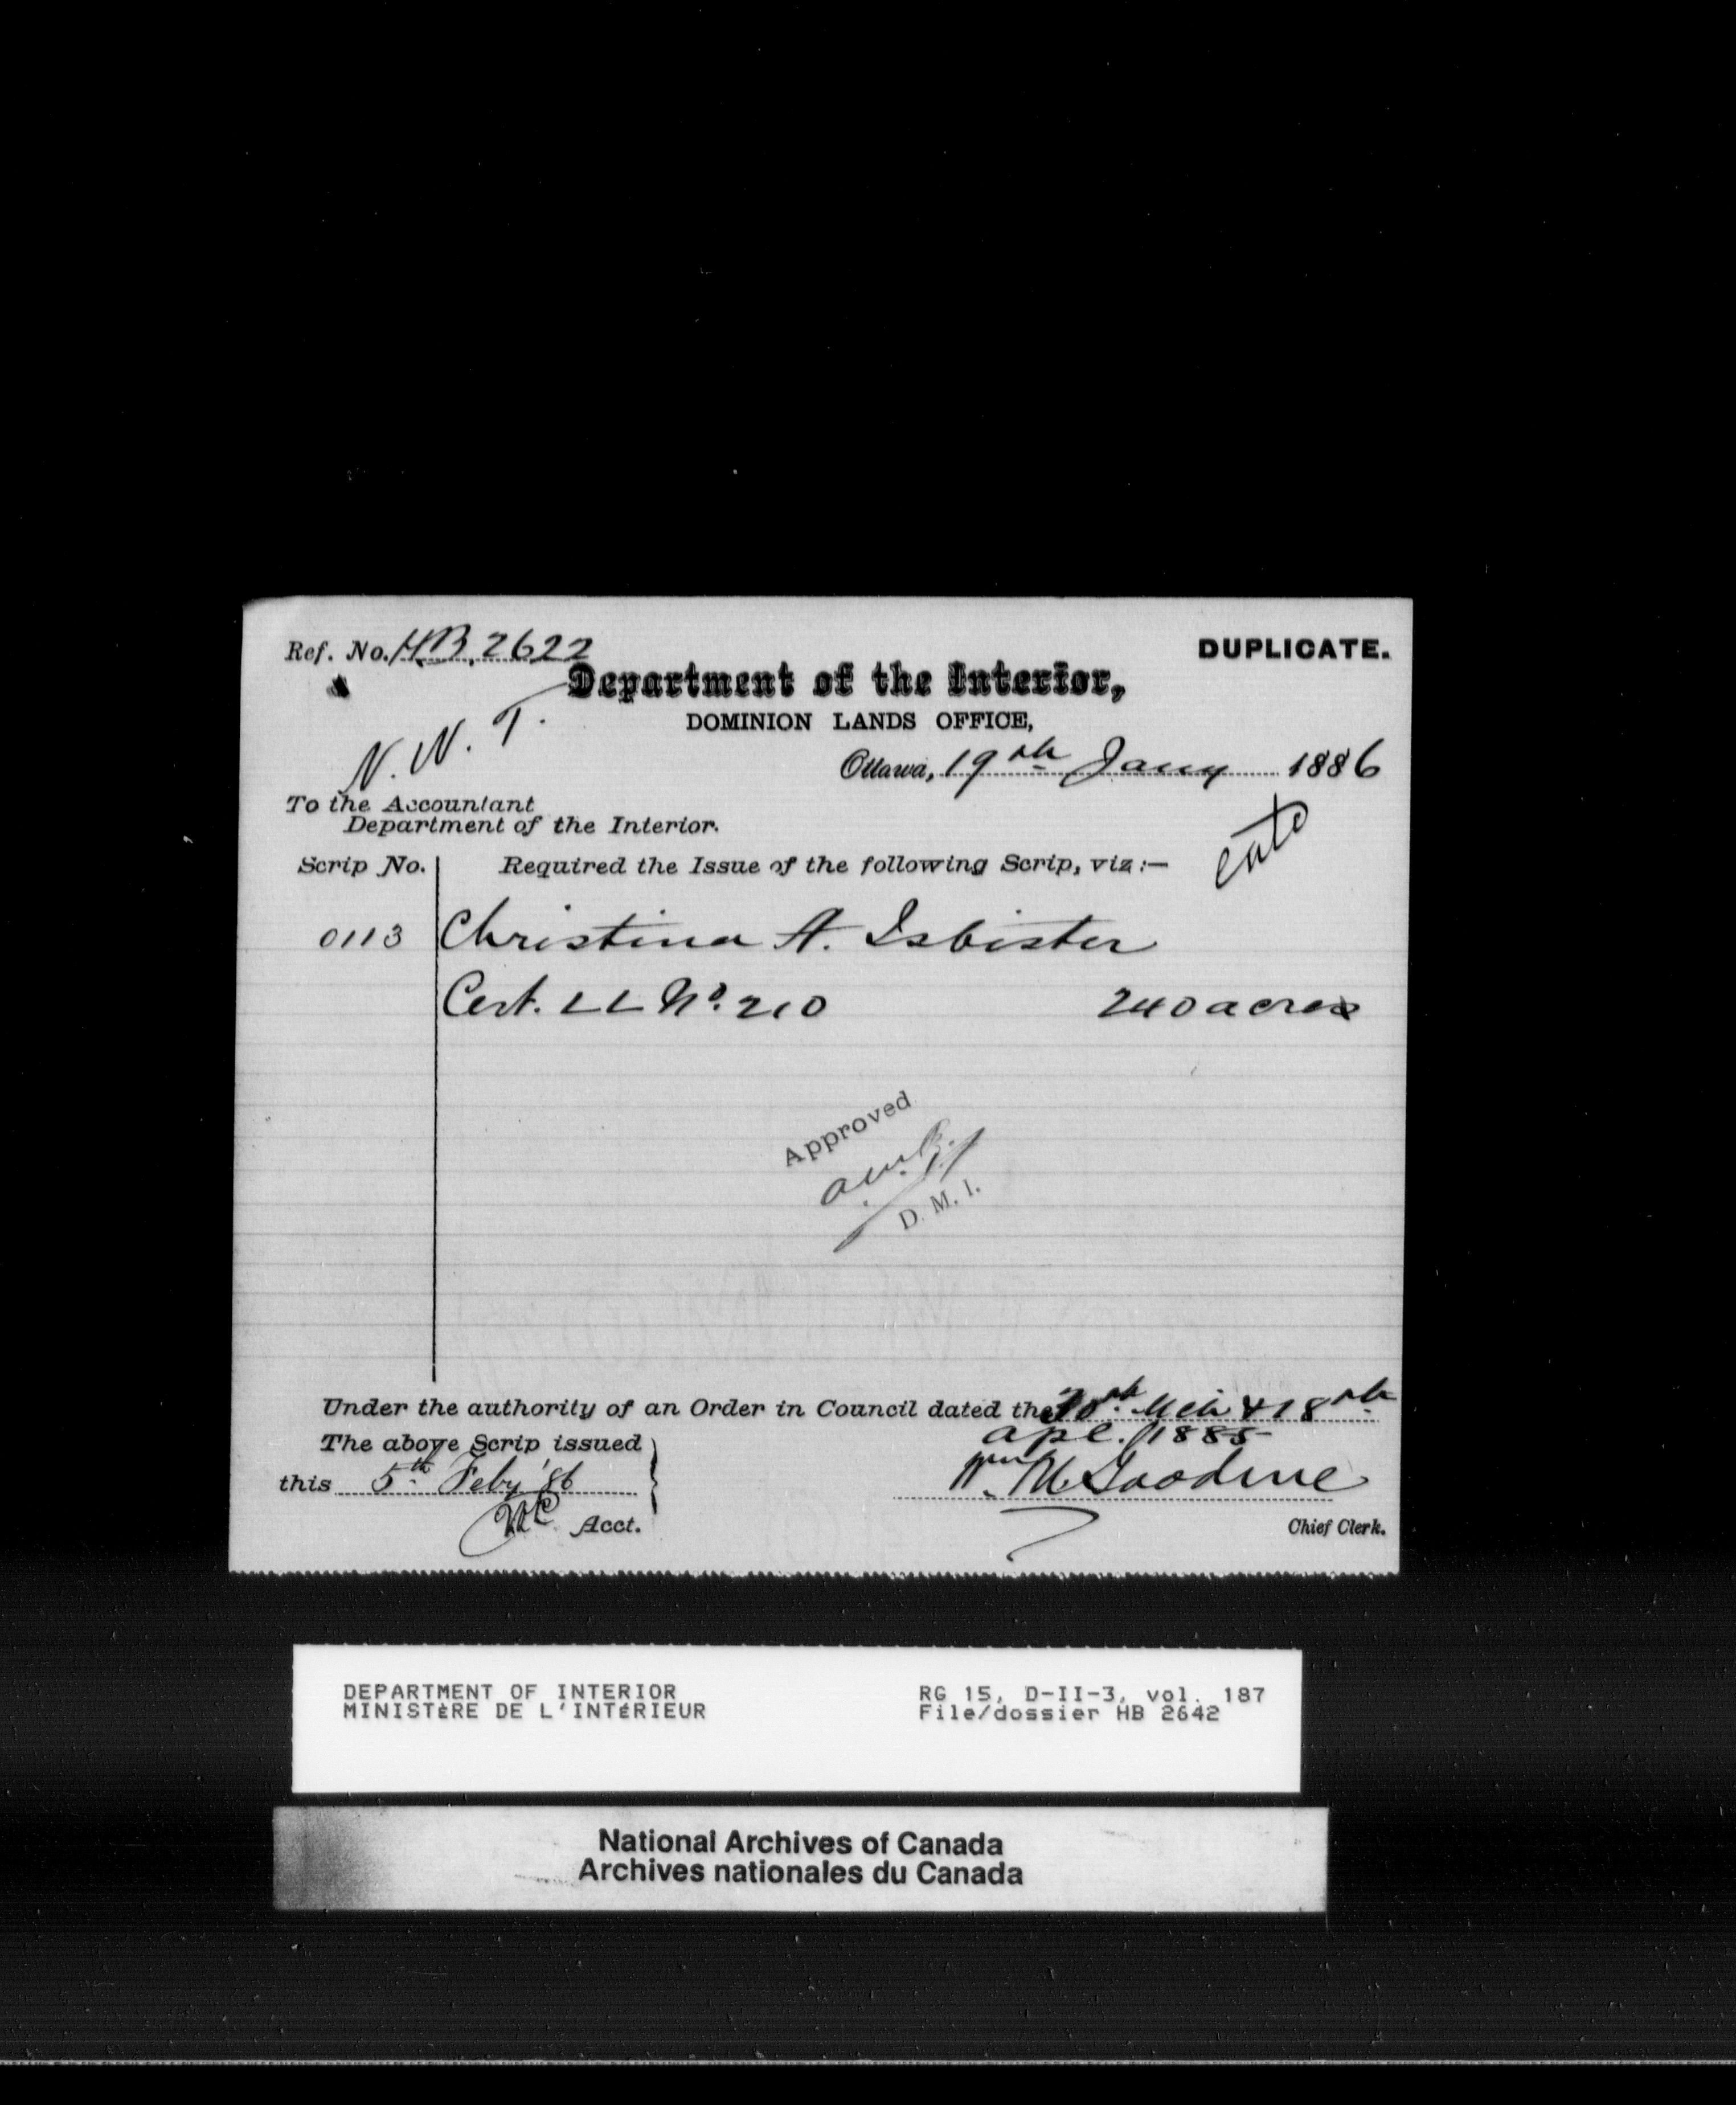 Ref. No. HB. 2622
DUPLICATE.
Department of the Interior,
N. W. T.
DOMINION LANDS OFFICE,
Ottawa, 19th Jany 1886
To the Accountant
Department of the Interior.
Scrip No.
Required the Issue of the following Scrip, viz:—
0113 Christina A. Isbister
Cert. LL No. 210 240 acres
Approved
D. M. I.
Under the authority of an Order in Council dated the 30th Mch & 18th
Apl. 1885
The above Scrip issued
this 5th Feby '86
Wm M Goodeve
Acct.
Chief Clerk.
DEPARTMENT OF INTERIOR
MINISTÈRE DE L'INTÉRIEUR
RG 15, D-II-3, vol. 187
File/dossier HB 2642
National Archives of Canada
Archives nationales du Canada